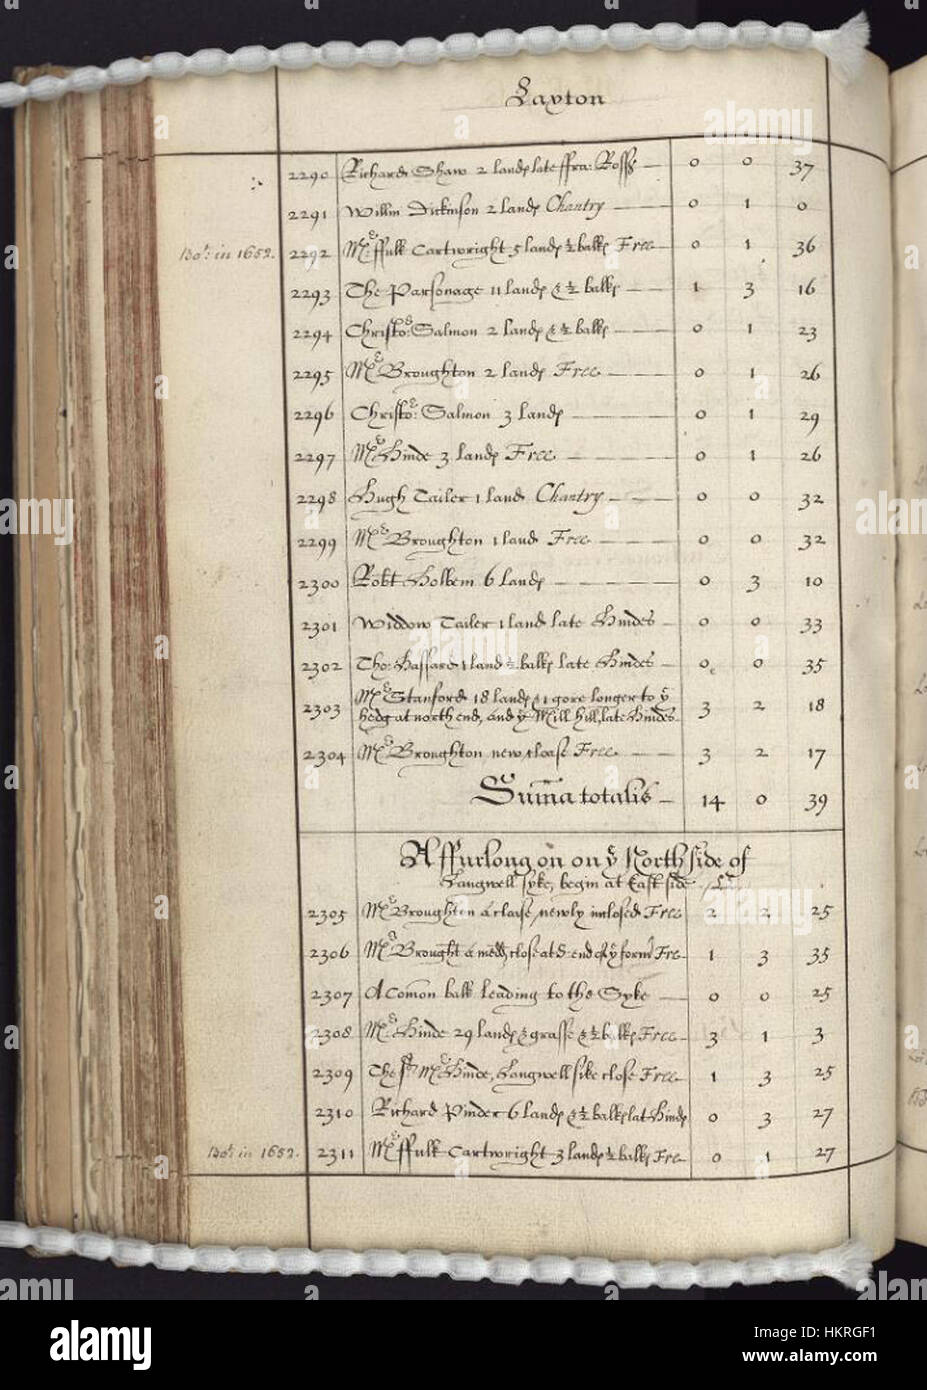 Laxton
2290 Richard Shaw 2 landp late ffra: Rosse 0 0 37
2291 Willm Dickinson 2 landp Chantry 0 1 0
Bot. in 1652. 2292 Mr ffulk Cartwright 5 landp ½ balkp Free 0 1 36
2293 The Parsonage 11 landp & ½ balkp 1 3 16
2294 Christo: Salmon 2 landp & ½ balkp 0 1 23
2295 Mr Broughton 2 landp Free 0 1 26
2296 Christo: Salmon 3 landp 0 1 29
2297 Mr Hinde 3 landp Free 0 1 26
2298 Hugh Tailer 1 land Chantry 0 0 32
2299 Mr Broughton 1 land Free 0 0 32
2300 Robt Holbem 6 landp 0 3 10
2301 Widdow Tailer 1 land late Hindes 0 0 33
2302 Tho: Hassard 1 land ½ balkp late Hindes 0 0 35
Mr Stanford 18 landp & 1 gore longer to ye
2303 hedg at north end, and ye Mill hill, late Hindes 3 2 18
2304 Mr Broughton new close Free 3 2 17
Suma totalis 14 0 39
A ffurlong on on ye North side of
Langwell syke, begin at East side
2305 Mr Broughton a close, newly inlosed Free 2 2 25
2306 Mr Brought a close at end of ye form Fre 1 3 35
2307 A Comon balk leading to the Syke 0 0 25
2308 Mr Hinde 29 landp & grasse & ½ balkp Free 3 1 3
2309 The sd Mr Hinde, Langwell sike close Free 1 3 25
2310 Richard Pinder 6 landp & ½ balkp lat Hinde 0 3 27
Bot. in 1652. 2311 Mr ffulk Cartwright 3 landp ½ balkp Fre 0 1 27
alamy
a
alamy stock photo
HKRGF1
www.alamy.com